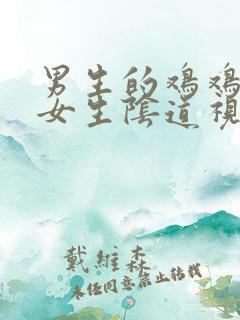 男生的鸡鸡
女生陰道視
戴維森
未经同意禁止转载